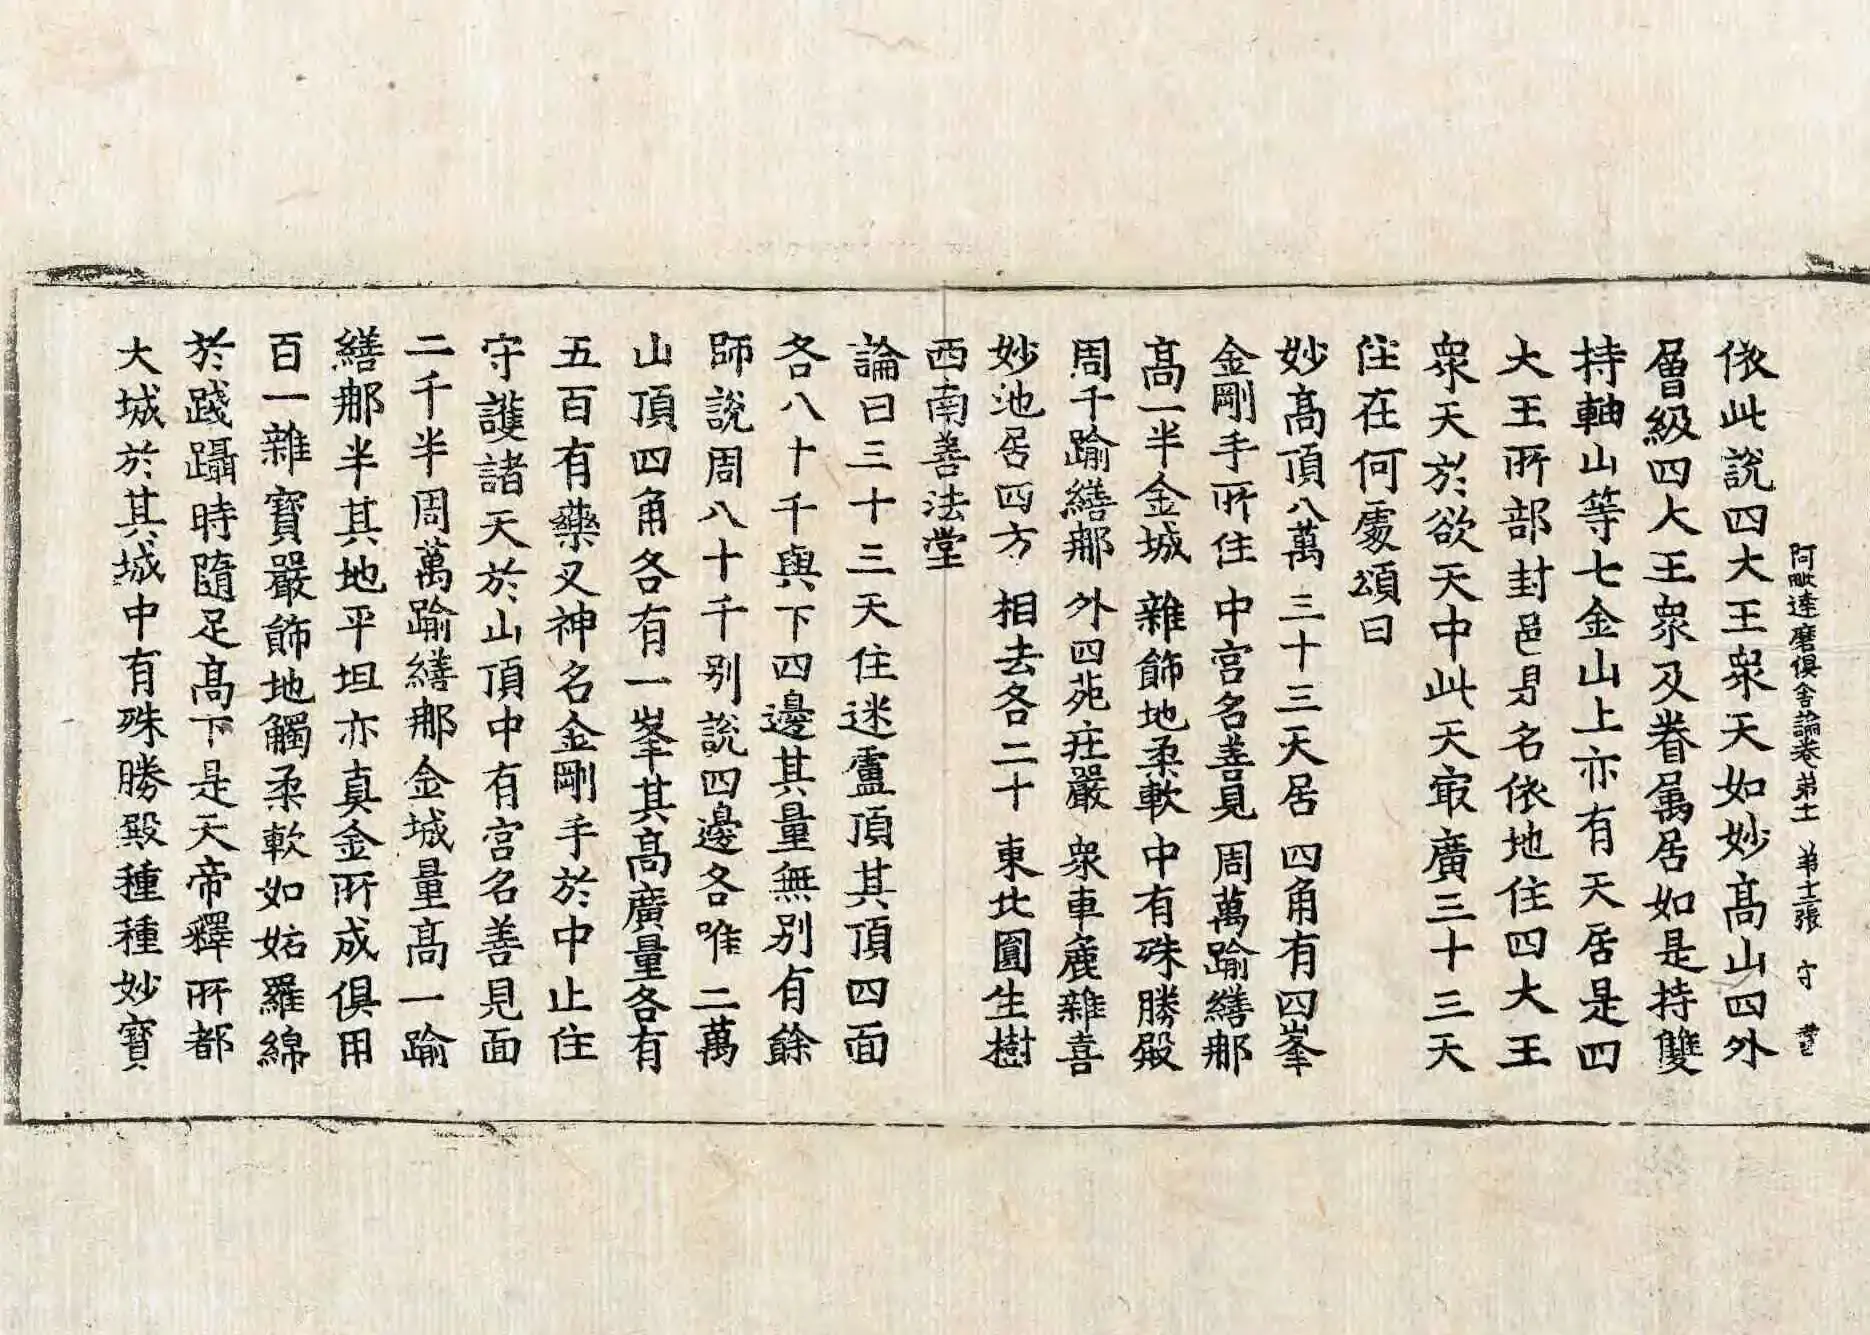 阿毗達磨俱舍論卷第十一　第十三張　守
依此說四大王衆天如妙高山四外
層級四大王衆及眷属居如是持雙
持軸山等七金山上亦有天居是四
大王所部封邑是名依地住四大王
衆天於欲天中此天㝡廣三十三天
住在何處頌曰
妙高頂八萬　三十三天居　四角有四峯
金剛手所住　中宫名善見　周萬踰繕那
高一半金城　雜飾地柔軟　中有殊勝殿
周千踰繕那　外四苑莊嚴　衆車麁雜喜
妙池居四方　相去各二十　東北圓生樹
西南善法堂
論曰三十三天住迷盧頂其頂四面
各八十千與下四邊其量無別有餘
師說周八十千別說四邊各唯二萬
山頂四角各有一峯其高廣量各有
五百有藥叉神名金剛手於中止住
守護諸天於山頂中有宫名善見面
二千半周萬踰繕那金城量高一踰
繕那半其地平坦亦真金所成俱用
百一雜寶嚴飾地觸柔軟如妬羅綿
於踐躡時隨足高下是天帝釋所都
大城於其城中有殊勝殿種種妙寶